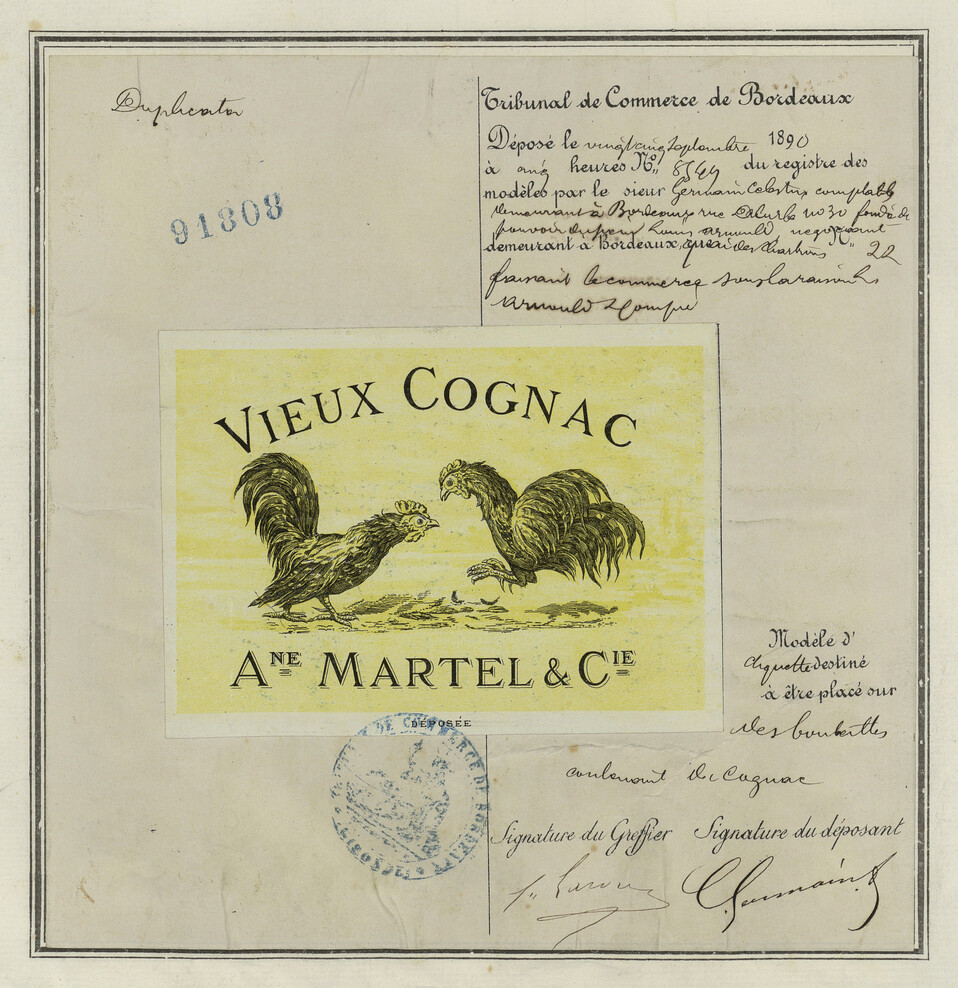 Duplicata
91808
Tribunal de Commerce de Bordeaux
Déposé le vingt cinq Septembre 1890
à onze heures N° 8544 du registre des
modèles par le sieur Germain Célestin comptable
demeurant à Bordeaux rue no 30 fondé de
pouvoir du sieur Louis Arnould, négociant
demeurant à Bordeaux, quai des Chartrons N° 22
faisant le commerce sous la raison
Arnould & Compie
VIEUX COGNAC
ANE MARTEL & CIE
DÉPOSÉE
Modèle d'
étiquette destiné
à être placé sur
des bouteilles
contenant du Cognac
TRIBUNAL DE COMMERCE DE BORDEAUX
Signature du Greffier Signature du déposant
C. Germain